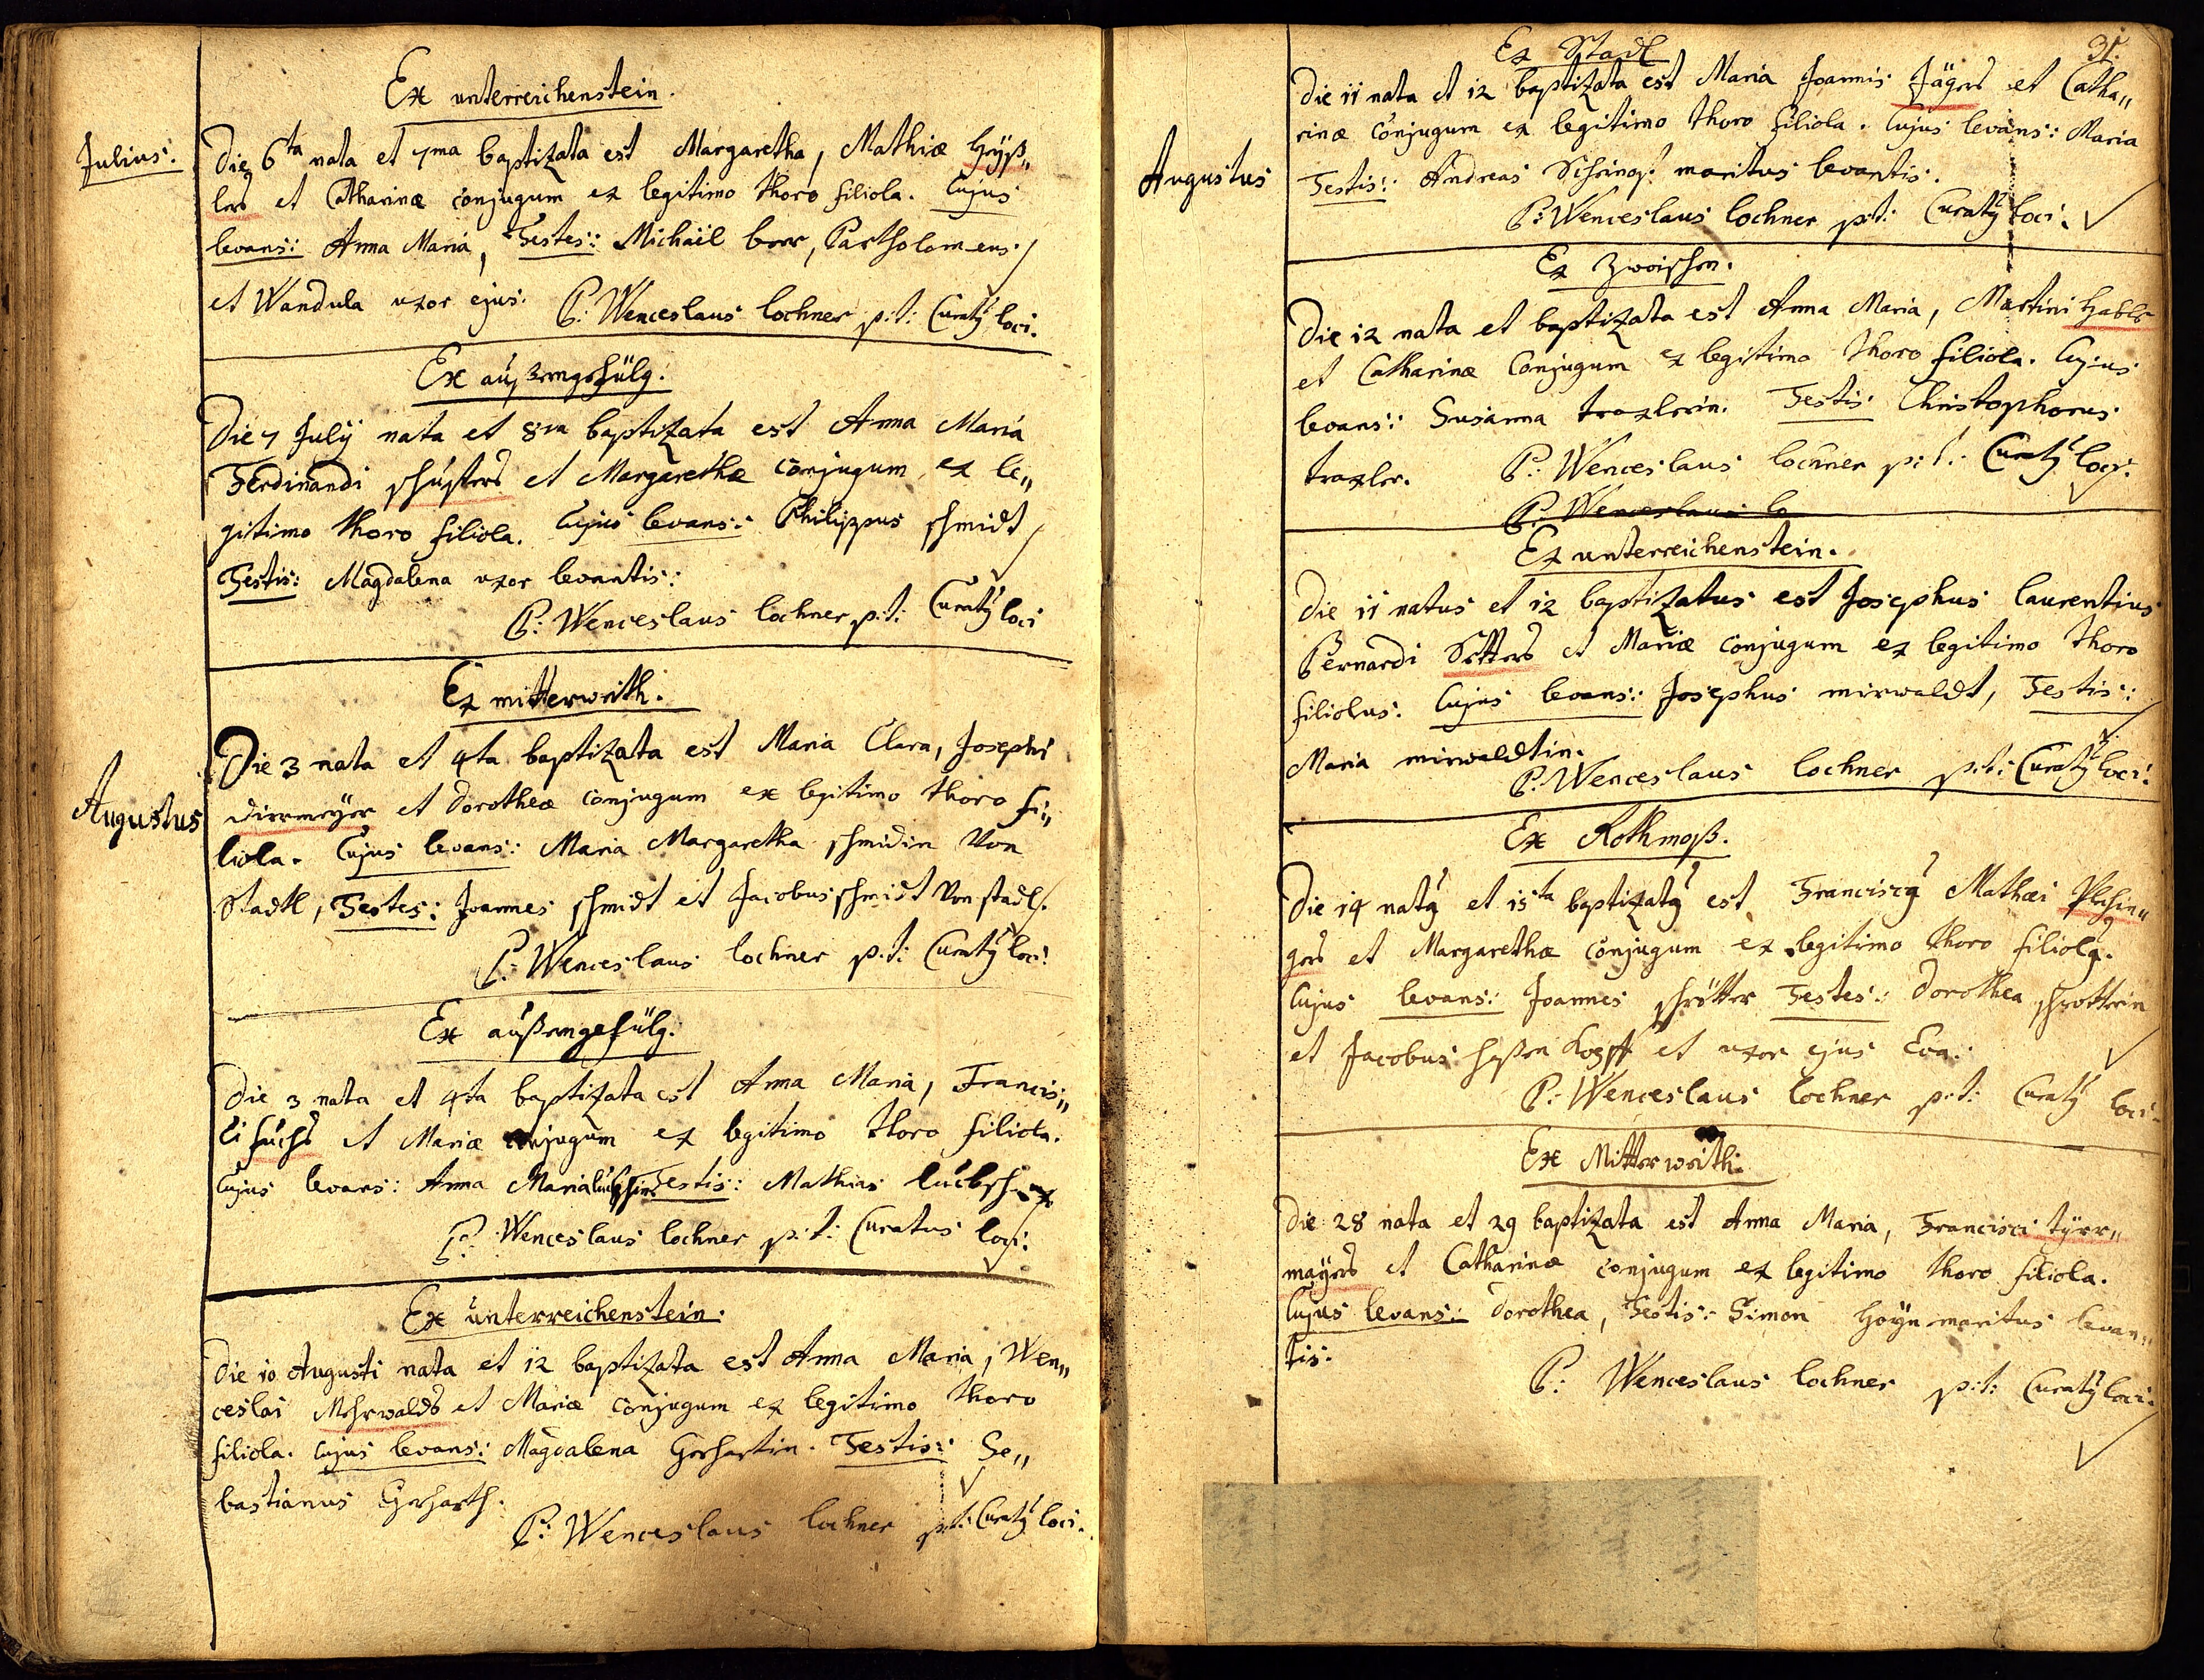 Ex unterreichenstein.
Julius.
Die 6ta nata et 7ma baptizata est Margaretha, Mathiæ
et Catharinæ conjugum ex legitimo thoro filiola. Cujus
levans: Anna Maria, Testes: Michaël Partholomeus
et Wandula uxor ejus. P: Wenceslaus lochner p:t: Curaty loci.
Ex
Die 7 July nata et 8va baptizata est Anna Maria
Ferdinandi schusters et Margarethæ conjugum ex le„
gitimo thoro filiola. Cujus levans: Philippus schmidt
Testis: Magdalena uxor levantis:
P: Wenceslaus lochner p:t: Curaty loci
Ex mitterweith.
Augustus
Die 3 nata et 4ta baptizata est Maria Clara, Josephi
dirrmeyer et Dorotheæ conjugum ex legitimo thoro fi„
liola. Cujus levans: Maria Margaretha schmidin Von
Stadtl, Testes: Joannes schmidt et Jacobus schmidt Von stadl.
P: Wenceslaus lochner p:t: Curaty loci:
Ex außengefülg.
Die 3 nata et 4ta baptizata est Anna Maria, Francis„
ci fuchs et Mariæ conjugum ex legitimo thoro filiola.
Cujus levans: Anna Maria Testis: Mathias
P: Wenceslaus lochner p:t: Curatus loci:
Ex unterreichenstein.
Die 10 Augusti nata et 12 baptizata est Anna Maria, Wen„
ceslai Mehrwalds et Mariæ conjugum ex legitimo thoro
filiola. Cujus levans: Magdalena Gerhartin. Testis: Se„
bastianus Gerharth.
P: Wenceslaus lochner p:t: Curaty loci.
31.
Ex Stadl
Augustus
Die 11 nata et 12 baptizata est Maria Joannis Jägers et Catha„
rinæ conjugum ex legitimo thoro filiola. Cujus levans: Maria
Testis: Andreas maritus levantis.
P: Wenceslaus lochner p:t: Curaty loci.
Ex
Die 12 nata et baptizata est Anna Maria, Martini
et Catharinæ Conjugum ex legitimo thoro filiola. Cujus
levans: Susanna traxlerin. Testis: Christophorus
traxler. P: Wenceslaus lochner p:t: Curaty loci.
P: Wenceslaus lo
Ex unterreichenstein.
Die 11 natus et 12 baptizatus est Josephus laurentius
Pernardi et Mariæ conjugum ex legitimo thoro
filiolus. Cujus levans: Josephus mirwaldt, Testis:
Maria mirwaldtin.
P: Wenceslaus lochner p:t: Curaty loci.
Ex Rothmoß.
Die 14 naty et 15ta baptizaty est Franciscy Mathæi
et Margarethæ conjugum ex legitimo thoro filioly.
Cujus levans: Joannes schrötter Testes: Dorothea schrottrin
et Jacobus et uxor ejus Eva.
P: Wenceslaus lochner p:t: Curaty loci.
Ex Mitterweith.
Die 28 nata et 29 baptizata est Anna Maria, Francisci tÿrr„
mayers et Catharinæ conjugum ex legitimo thoro filiola.
Cujus levans: Dorothea, Testis: Simon maritus levan„
tis.
P: Wenceslaus lochner p:t: Curaty loci.